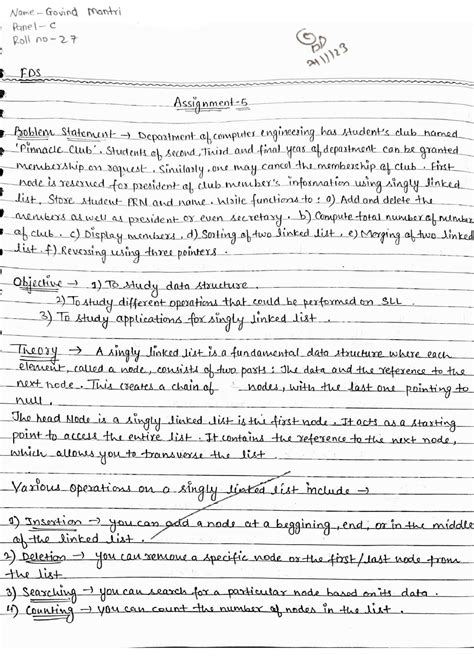 Name - Govind Mantri
Panel - C
Roll no - 27
FDS
Assignment-5
Problem Statement → Department of computer engineering has student's club named
'Pinnacle Club'. Students of second, Third and final year of department can be granted
membership on request. Similarly, one may cancel the membership of club. First
node is reserved for president of club member's information using singly linked
list, Store student PRN and name. Write functions to: a) Add and delete the
members as well as president or even secretary. b) Compute total number of member
of club. c) Display members. d) Sorting of two linked list. e) Merging of two linked
list. f) Reversing using three pointers.
Objective → 1) To study data structure.
2) To study different operations that could be performed on SLL.
3) To study applications for singly linked list.
Theory → A singly linked list is a fundamental data structure where each
element, called a node, consists of two parts: The data and the reference to the
next node. This creates a chain of nodes, with the last one pointing to
null.
The head Node is a singly linked list is the first node. It acts as a starting
point to access the entire list. It contains the reference to the next node,
which allows you to transverse the list.
Various operations on a singly linked list include →
1) Insertion → you can add a node at a beggining, end, or in the middle
of the linked list.
2) Deletion → you can remove a specific node or the first/last node from
the list.
3) Searching → you can search for a particular node based on its data.
4) Counting → you can count the number of nodes in the list.